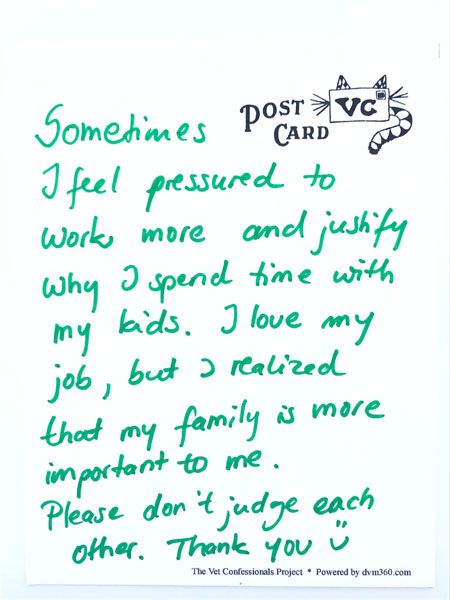 POST
CARD
VC
Sometimes
I feel pressured to
work more and justify
why I spend time with
my kids. I love my
job, but I realized
that my family is more
important to me.
Please don't judge each
other. Thank you
The Vet Confessionals Project * Powered by dvm360.com